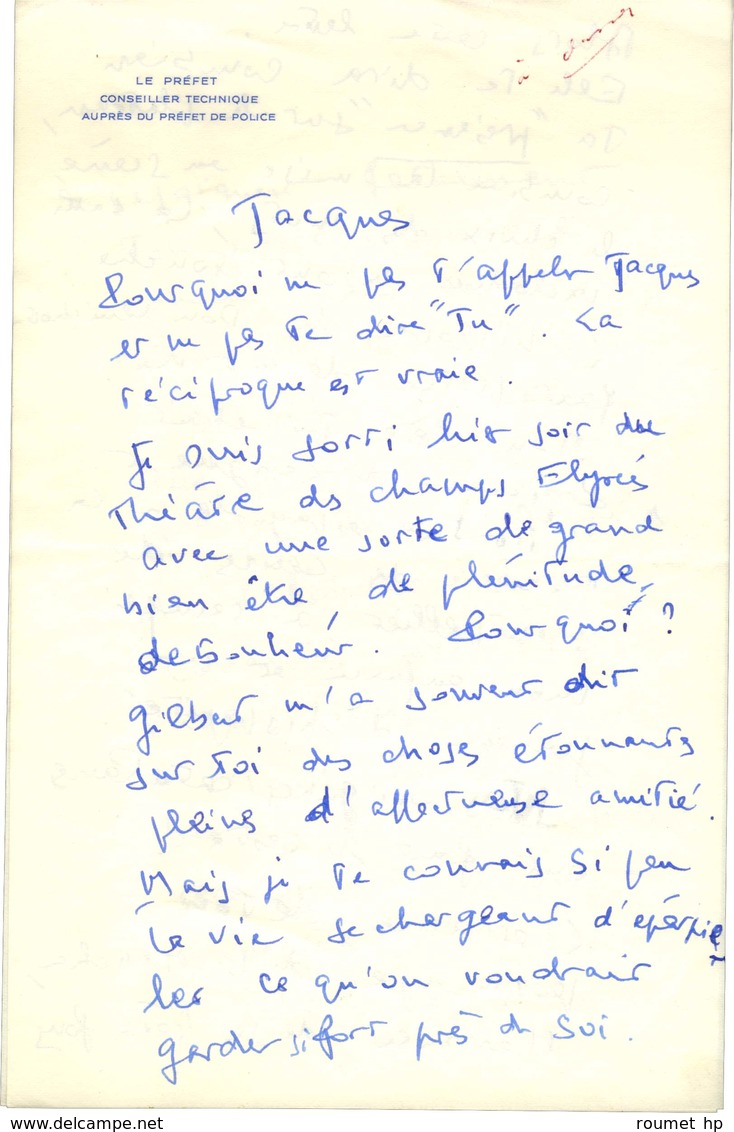 à
LE PRÉFET
CONSEILLER TECHNIQUE
AUPRÈS DU PRÉFET DE POLICE
Jacques
Pourquoi ne pas t'appeler Jacques
et ne pas te dire "Tu". La
réciproque est vraie.
Je suis sorti hier soir du
théâtre des champs Elysées
avec une sorte de grand
bien être, de plénitude,
de bonheur. Pourquoi ?
Gilbert m'a souvent dit
sur toi des choses étonnantes
pleines d'affectueuse amitié.
Mais je te connais si peu
la vie se chargeant d'épérpie
ler ce qu'on voudrait
garder si fort près de soi.
delcampe.net
roumet hp